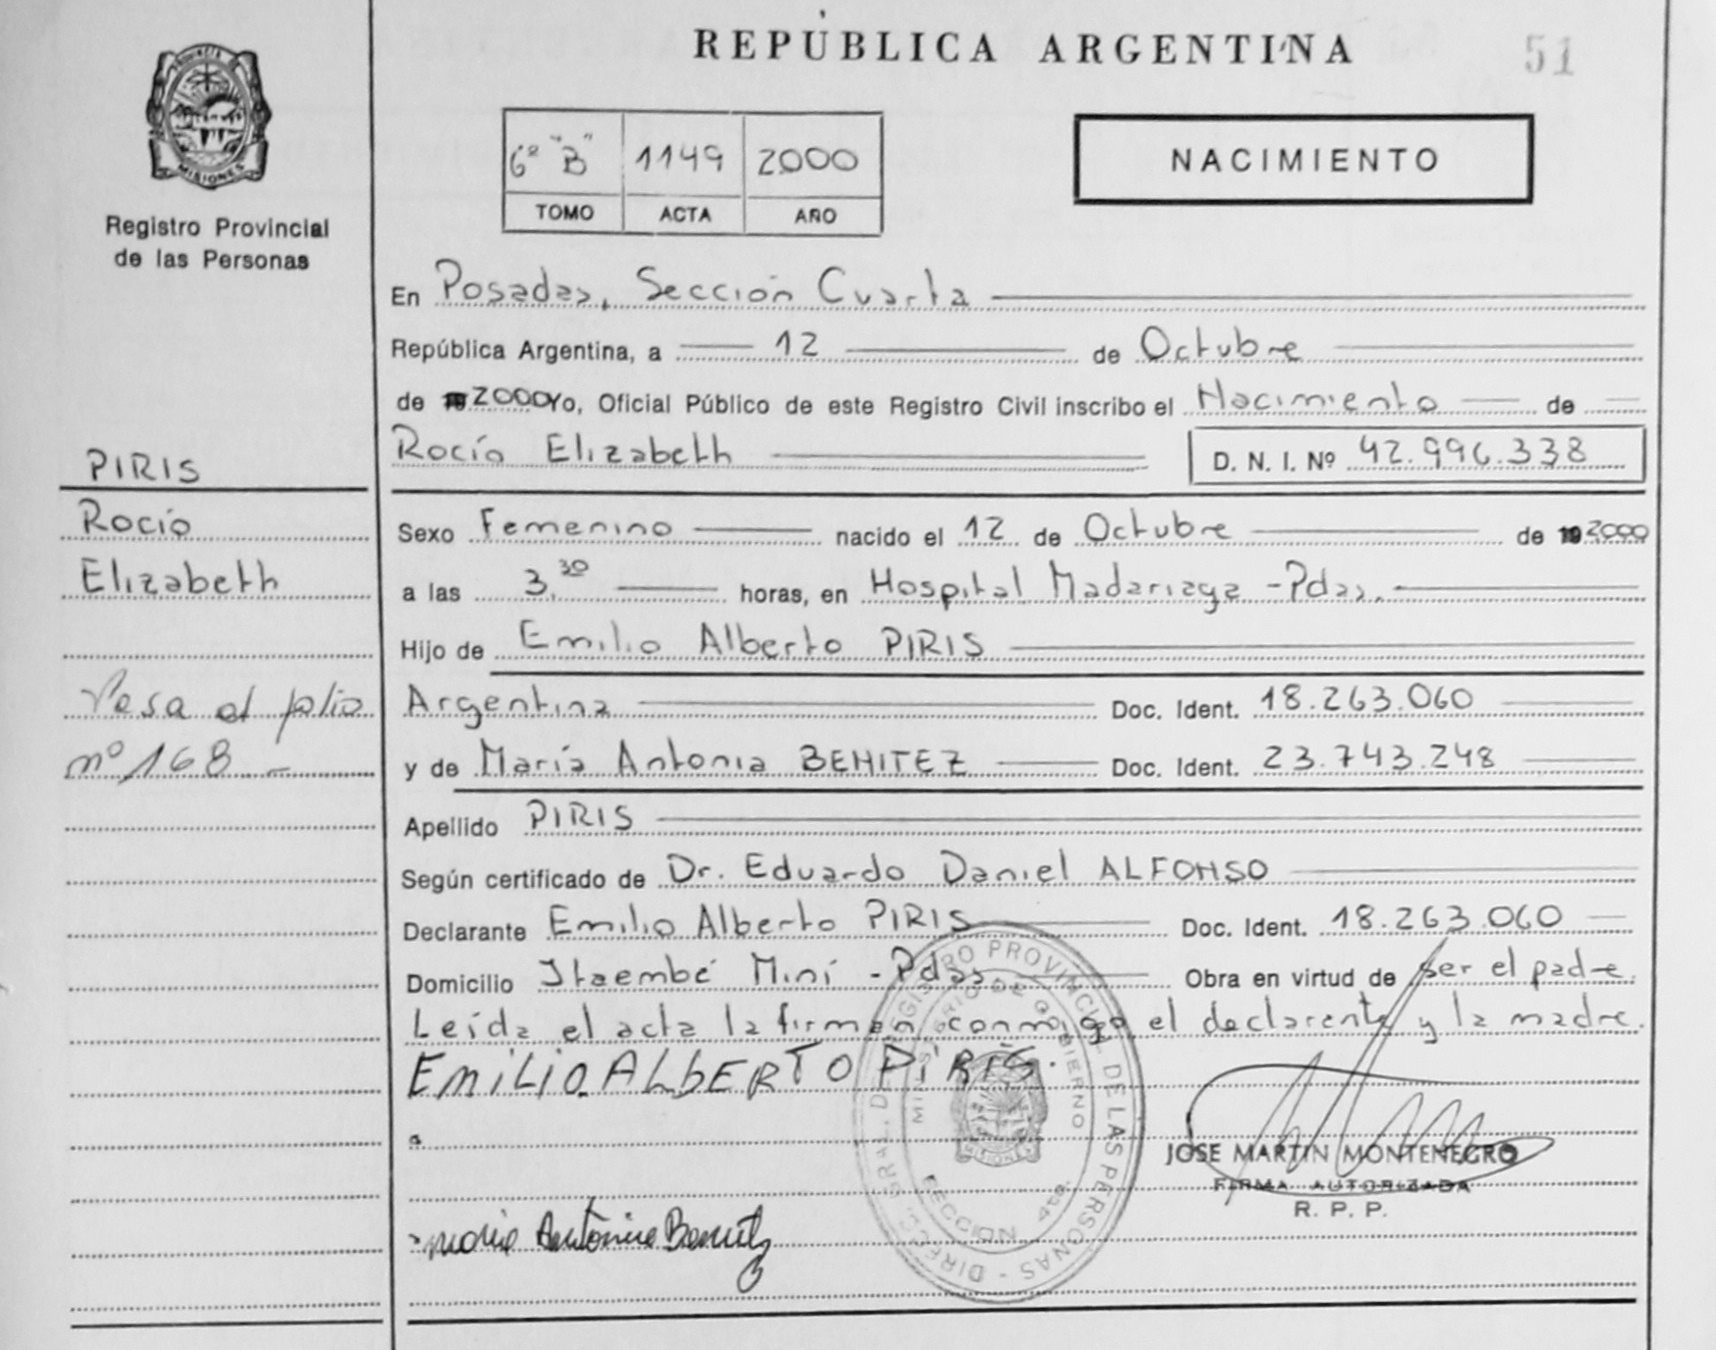 REPÚBLICA ARGENTINA
51
PROVINCIA
MISIONES
Registro Provincial
de las Personas
6º "B" 1149 2000
TOMO ACTA AÑO
NACIMIENTO
En Posadas, Sección Cuarta
República Argentina, a 12 de Octubre
de 2000 Yo, Oficial Público de este Registro Civil inscribo el Nacimiento de
Rocío Elizabeth D. N. I. Nº 42.996.338
PIRIS
Rocío
Elizabeth
Pasa al folio
nº 168
Sexo Femenino nacido el 12 de Octubre de 19 2000
a las 3.30 horas, en Hospital Madariaga - Pdas.
Hijo de Emilio Alberto PIRIS
Argentina Doc. Ident. 18.263.060
y de María Antonia BENITEZ Doc. Ident. 23.743.248
Apellido PIRIS
Según certificado de Dr. Eduardo Daniel ALFONSO
Declarante Emilio Alberto PIRIS Doc. Ident. 18.263.060
Domicilio Itaembé Miní - Pdas. Obra en virtud de ser el padre.
Leída el acta la firman conmigo el declarante y la madre.
EMILIO ALBERTO PIRIS.
JOSE MARTIN MONTENEGRO
FIRMA AUTORIZADA
R. P. P.
Maria Antonia Benitez
DIRECC. GRAL. DE REGISTRO PROVINCIAL DE LAS PERSONAS
MINISTERIO DE GOBIERNO
SECCION 4ta.
MISIONES